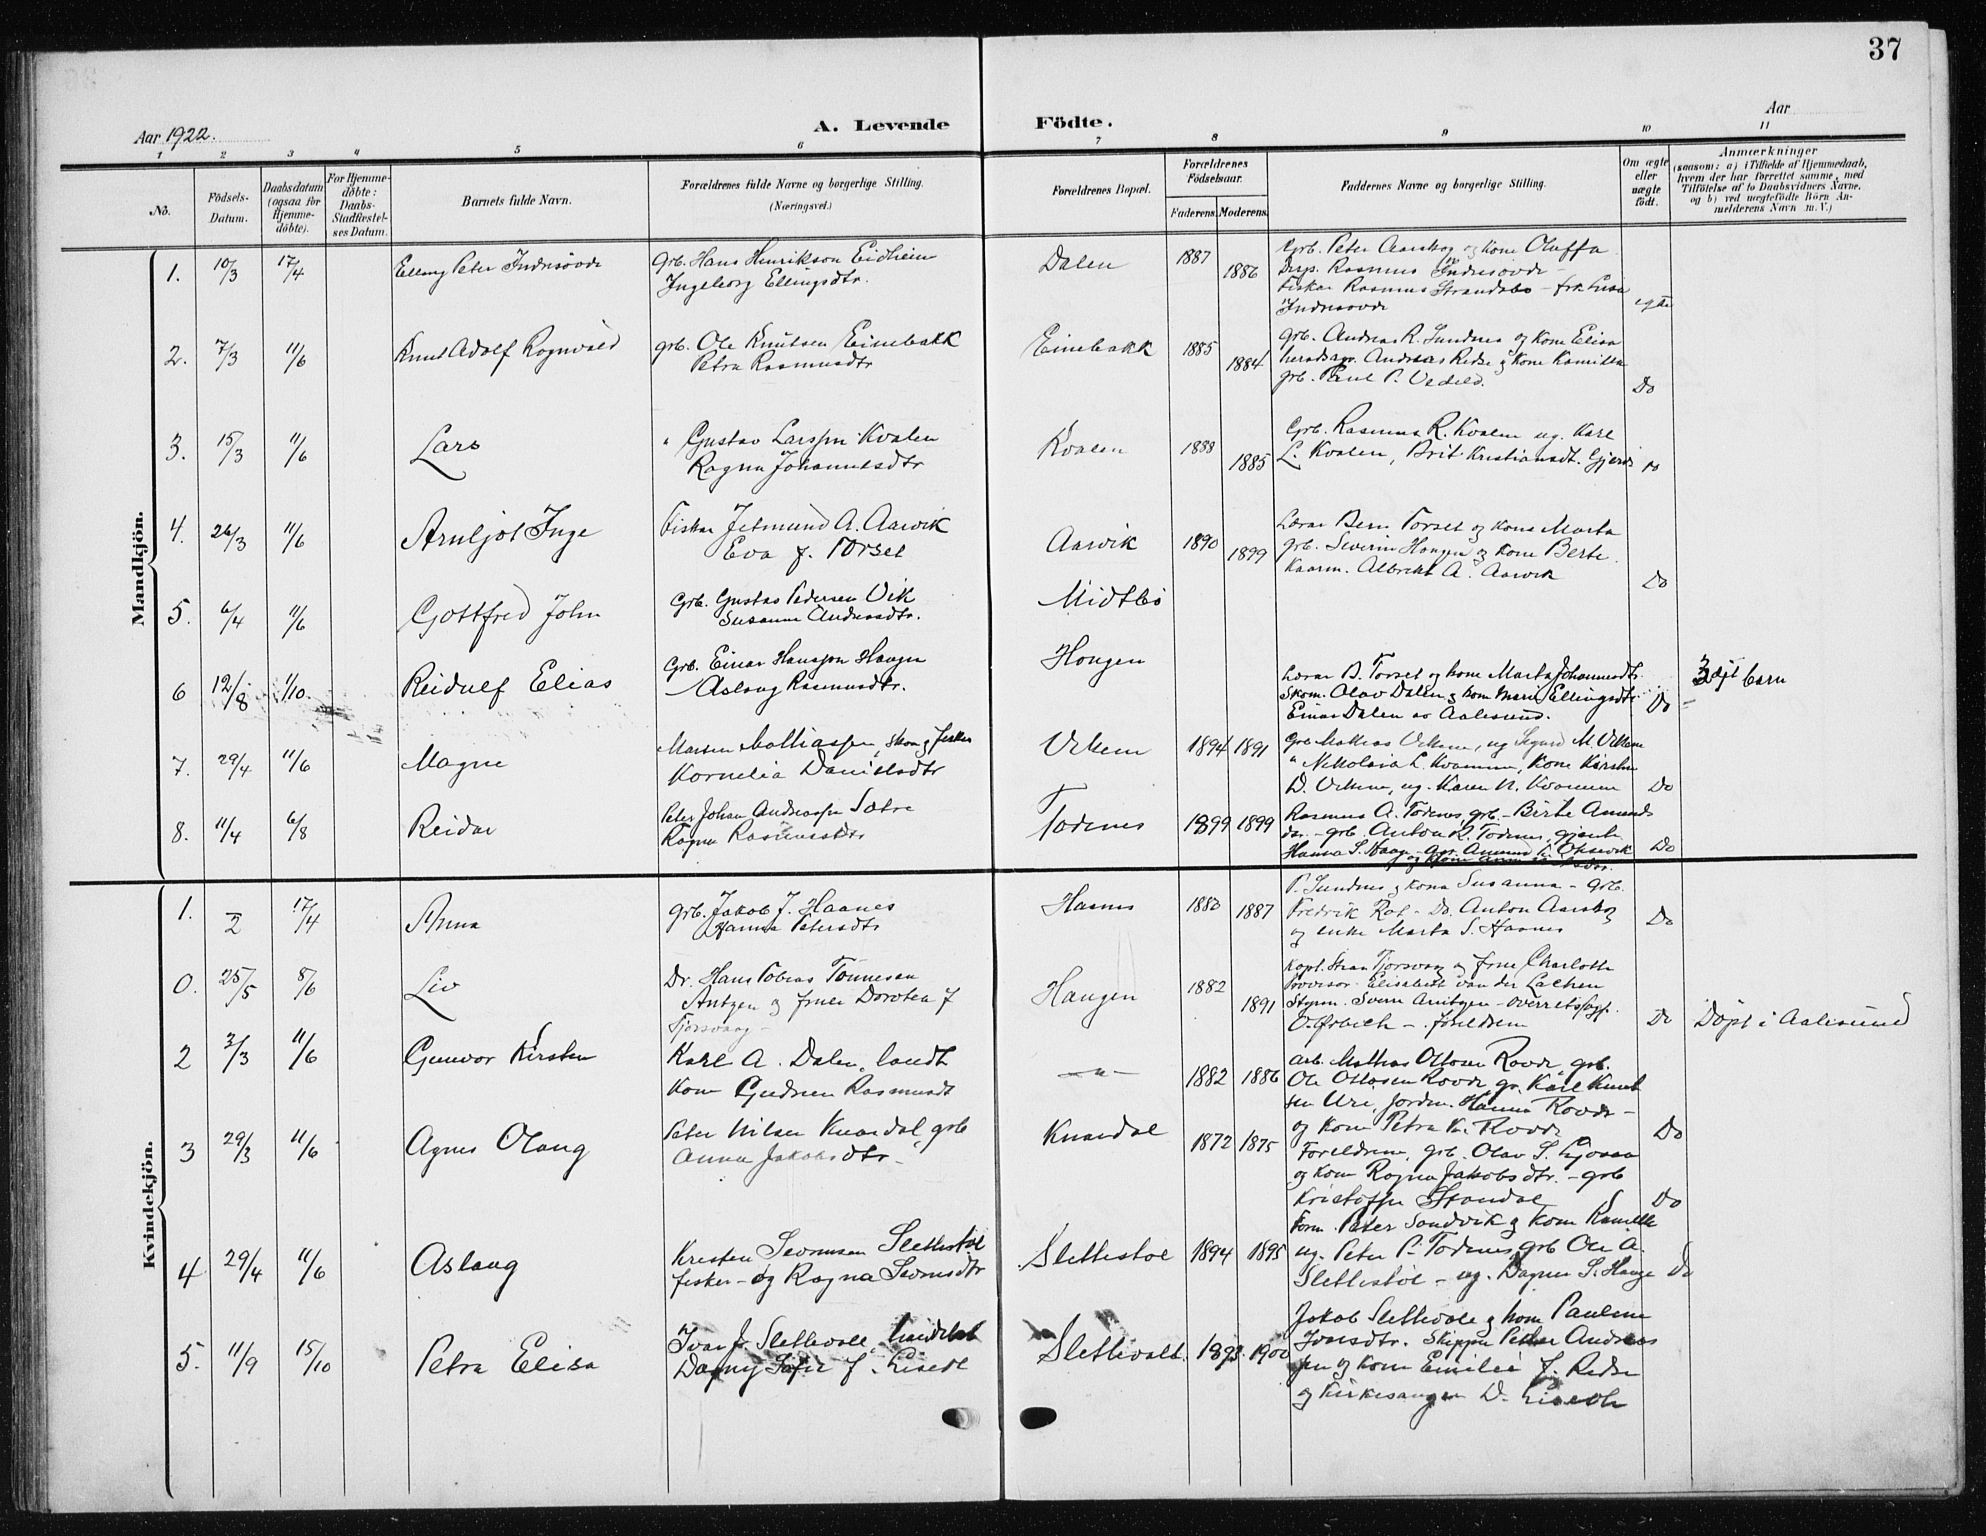 37
Aar 1922.
A. Levende Födte.
Aar
1 2 3 4 5 6 7 8 9 10 11
No.
Födsels-Datum.
Daabsdatum (ogsaa for Hjemme-döbte).
For Hjemme-döbte: Daabs-Stadfæstel-ses Datum.
Barnets fulde Navn.
Forældrenes fulde Navne og borgerlige Stilling.
(Næringsvei.)
Forældrenes Bopæl.
Forældrenes Födselsaar.
Faderens. Moderens.
Faddernes Navne og borgerlige Stilling.
Om ægte eller uægte födt.
Anmærkninger
(saasom: a) i Tilfælde af Hjemmedaab, hvem der har forrettet samme, med Tilföielse af to Daabsvidners Navne, og b) ved uægtefödte Börn An-melderens Navn m. V.)
Mandkjön.
1. 10/3 17/4 Elling Peter Indresövde
Grb. Hans Henrikson Eidheim
Ingeborg Ellingsdtr.
Dalen 1887 1886
Grb. Peter Aarskog og Kone Oluffa
Rasmus Indresövde -
Fisker Rasmus Strandabö - frk.
Indresövde
2. 7/3 11/6 Knut Adolf Rognvald
grb. Ole Knutsen Einebakk
Petra Rasmusdtr
Einebakk 1885 1884
grb. Andreas R. Sundnes og Kone Elisa
Andreas Redse og Kone Kamilla
grb. Paul P. Vedeld. Do
3. 15/3 11/6 Lars
" Gustav Larssen Kvalen
Ragna Johannesdtr
Kvalen 1888 1885
Grb. Rasmus R. Kvalen ug. Karl
L. Kvalen, Brit Kristiansdt. Gjerde Do
4. 26/3 11/6 Arnljot Inge
Fisker Jetmund A. Aarvik
Eva J. Torset
Aarvik 1890 1899
Lærar Bern. Torset og Kona Marta
grb. Severin Haugen og Kone Berte
Kaarm. Albrikt A. Aarvik Do
5. 6/4 11/6 Gottfred John
Grb. Gustav Pedersen Vik
Susanne Andreasdtr.
Midtbö
6 12/8 1/10. Reidulf Elias
Grb. Einar Hanssen Haugen
Aslaug Rasmusdtr.
Haugen
Lærar B. Torset og kone Marta Johannesdtr
Skom. Olav Dalen og kone Marie Ellingsdtr
Einar Dalen av Aalesund. Do
barn
7. 29/4 11/6 Magne
Marten Mathiassen, skom og fisker
Kornelia Danielsdtr
Urkem 1894 1891
Grb Mathias Urkem, ug Sigurd M. Urkem
" Nikolaia L. Kvamme, Kone Kirsten
D. Urkem, ug. Karen N. Kvamme Do
8. 11/4 6/8 Reidar
Peter Johan Andreassen Sætre
Ragna Rasmusdtr
Todenes 1899 1899
Rasmus A. Todenes, grb. - Birte Amunds
dtr. - grb. Anton R. Todenes, gjente
Hanna S. Hauge - Do
Kvindekjön.
1. 2 17/4 Anna
grb. Jakob J. Haanes
Hanna Petersdtr
Haanes 1880 1887
P. Sundnes og kona Susanna - grb.
Fredrik Rot - Do. Anton Aarskog
og enke Marta S. Haanes Do
0. 25/5 8/6 Liv
Dr. Hans Tobias Tönnesen
Arntzen og frue Dorotea J
Tjörsvaag -
Haugen 1882 1891
Kapt. Tjorsvaag og frue Charlotte
Provisor Elisabeth van der Lachen
Styrm. Sverre Arntzen - Overretssagf.
- foreldrene Do
Döpt i Aalesund
2 3/3 11/6 Gunvor Kirsten
Karl A. Dalen, landh
Kone Gudrun Rasmusdt
-"- 1882 1886
arb. Mathias Ottosen Rovde, grb.
Ole Ottosen Rovde, gr. Karl Knut
sen Ure, jordm. Hanna Rovde -
og kone Petra K. Rovde Do
3 29/3 11/6 Agnes Olaug
Peter Nilsen Knardal, grb
Anna Jakobsdtr -
Knardal 1872 1875
Foreldrene, grb. Olav S.
og Kone Ragna Jakobsdtr. - grb
Kristoffer Standal Do
4 29/4 11/6 Aslaug
Kresten Severinsen Slettestöl
fisker - og Ragna Severinsdtr
Slettestöl 1894 1895
Form. Peter Sandvik og kone Kamilla
ug. Peter P. Todenes, grb Ole A.
Slettestöl - ug. Dagne S. Hauge Do
5. 11/9 15/10 Petra Elisa
Ivar J. Slettevoll,
Dagny Sofie J. Liset
Slettevoll. 1893 1900
Jakob Slettevole og kone Pauline
Ivarsdtr. Skipper Petter Andreas
sen og kone Emilie J. Redse
og Kirkesanger D. Liseth